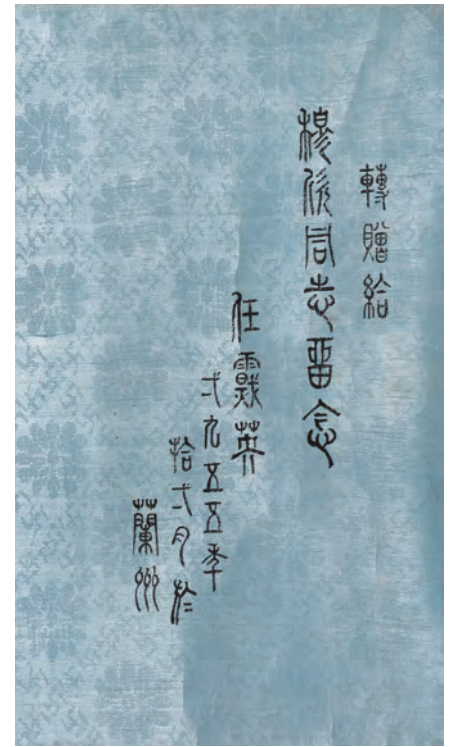 轉贈給
穆同志畱念
任震英
弌九五五年
拾弌月於
蘭州